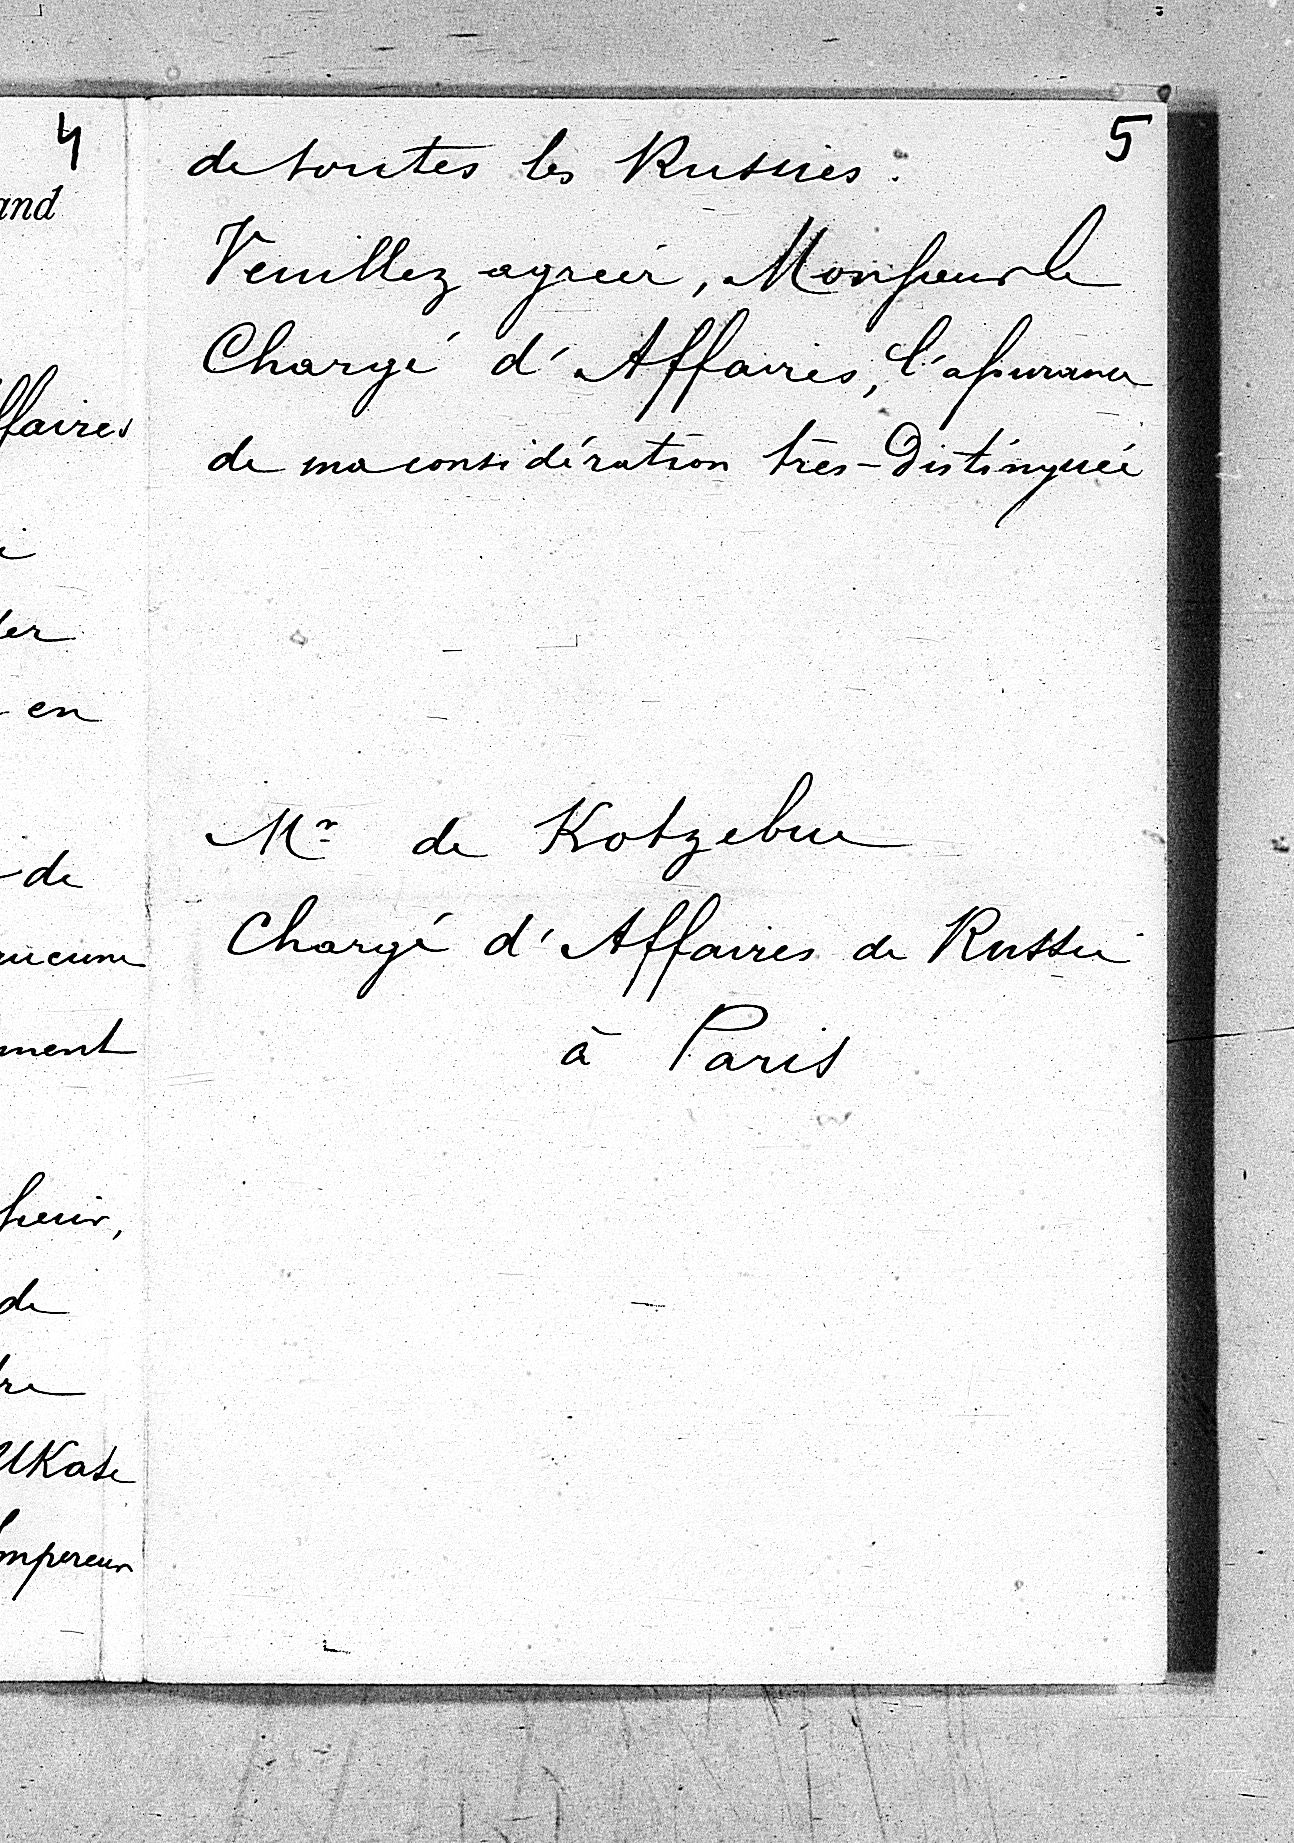 4
and
ffaires
ter
en
de
aucune
ment
sieur,
de
tre
Ukase
mpereur
5
de toutes les Russies.
Veuillez agréer, Monsieur le
Chargé d'Affaires, l'assurance
de ma considération très-Distinguée
Mr de Kotzebue
Chargé d'Affaires de Russie
à Paris